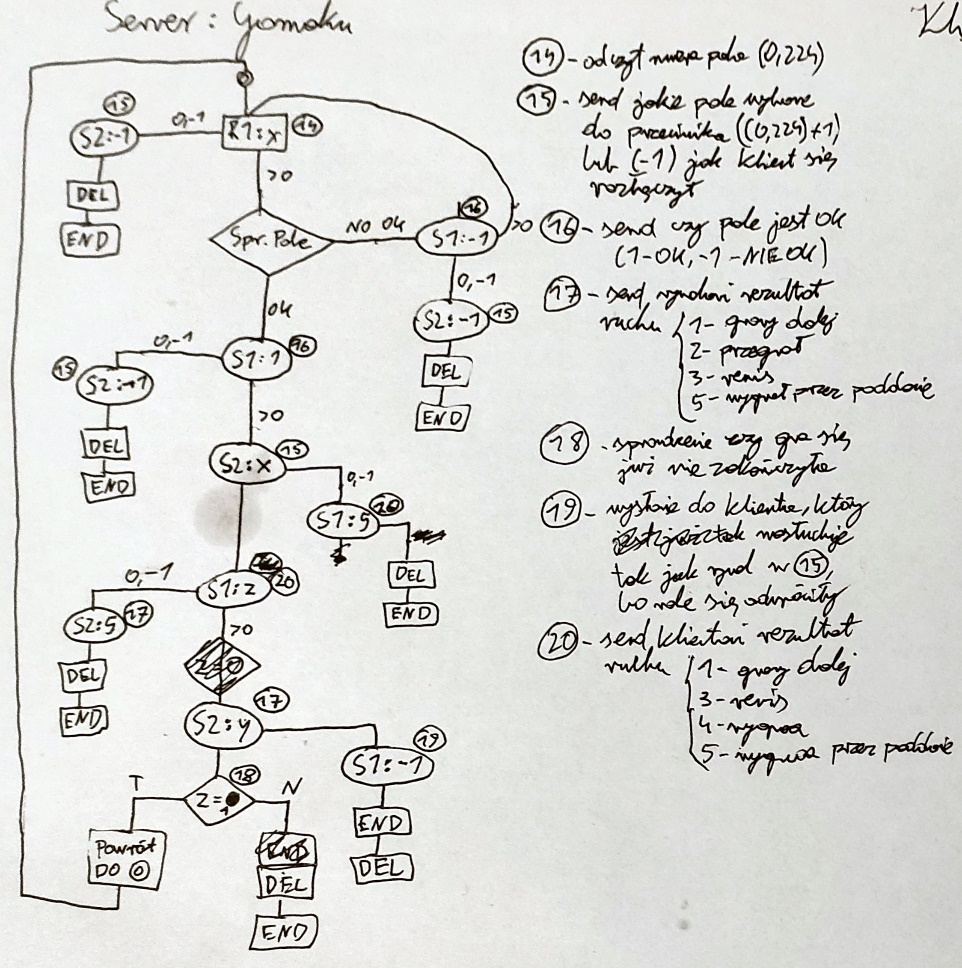 Server: Gomoku
Kl
0
15
S2:-1
0,-1
R1:x
14
DEL
END
>0
Spr. Pole
NO OK
16
S1:-1
>0
0,-1
S2:-1
15
DEL
END
OK
S1:1
16
0,-1
15
DEL
END
>0
S2:x
15
0,-1
S1:5
20
DEL
END
S1:z
20
0,-1
S2:5
17
DEL
END
>0
S2:y
17
S1:-1
19
END
DEL
18
T
N
Powrót
DO 0
DEL
END
14 - odczyt numeru pola (0,224)
15 - send jakie pole wybrane
do przeciwnika ((0,224)+1)
lub (-1) jak klient się
rozłączył
16 - send czy pole jest OK
(1-OK, -1-NIE OK)
17 - send rezultat
ruchu
1- gramy dalej
2- przegrał
3- remis
5- wygrał przez poddanie
18 - sprawdzenie czy gra się
już nie zakończyła
19 - wysłanie do klienta, który
nasłuchuje
tak jak w 15,
bo role się odwróciły
20 - send klientowi rezultat
ruchu
1- gramy dalej
3- remis
4- wygrana
5- wygrana przez poddanie